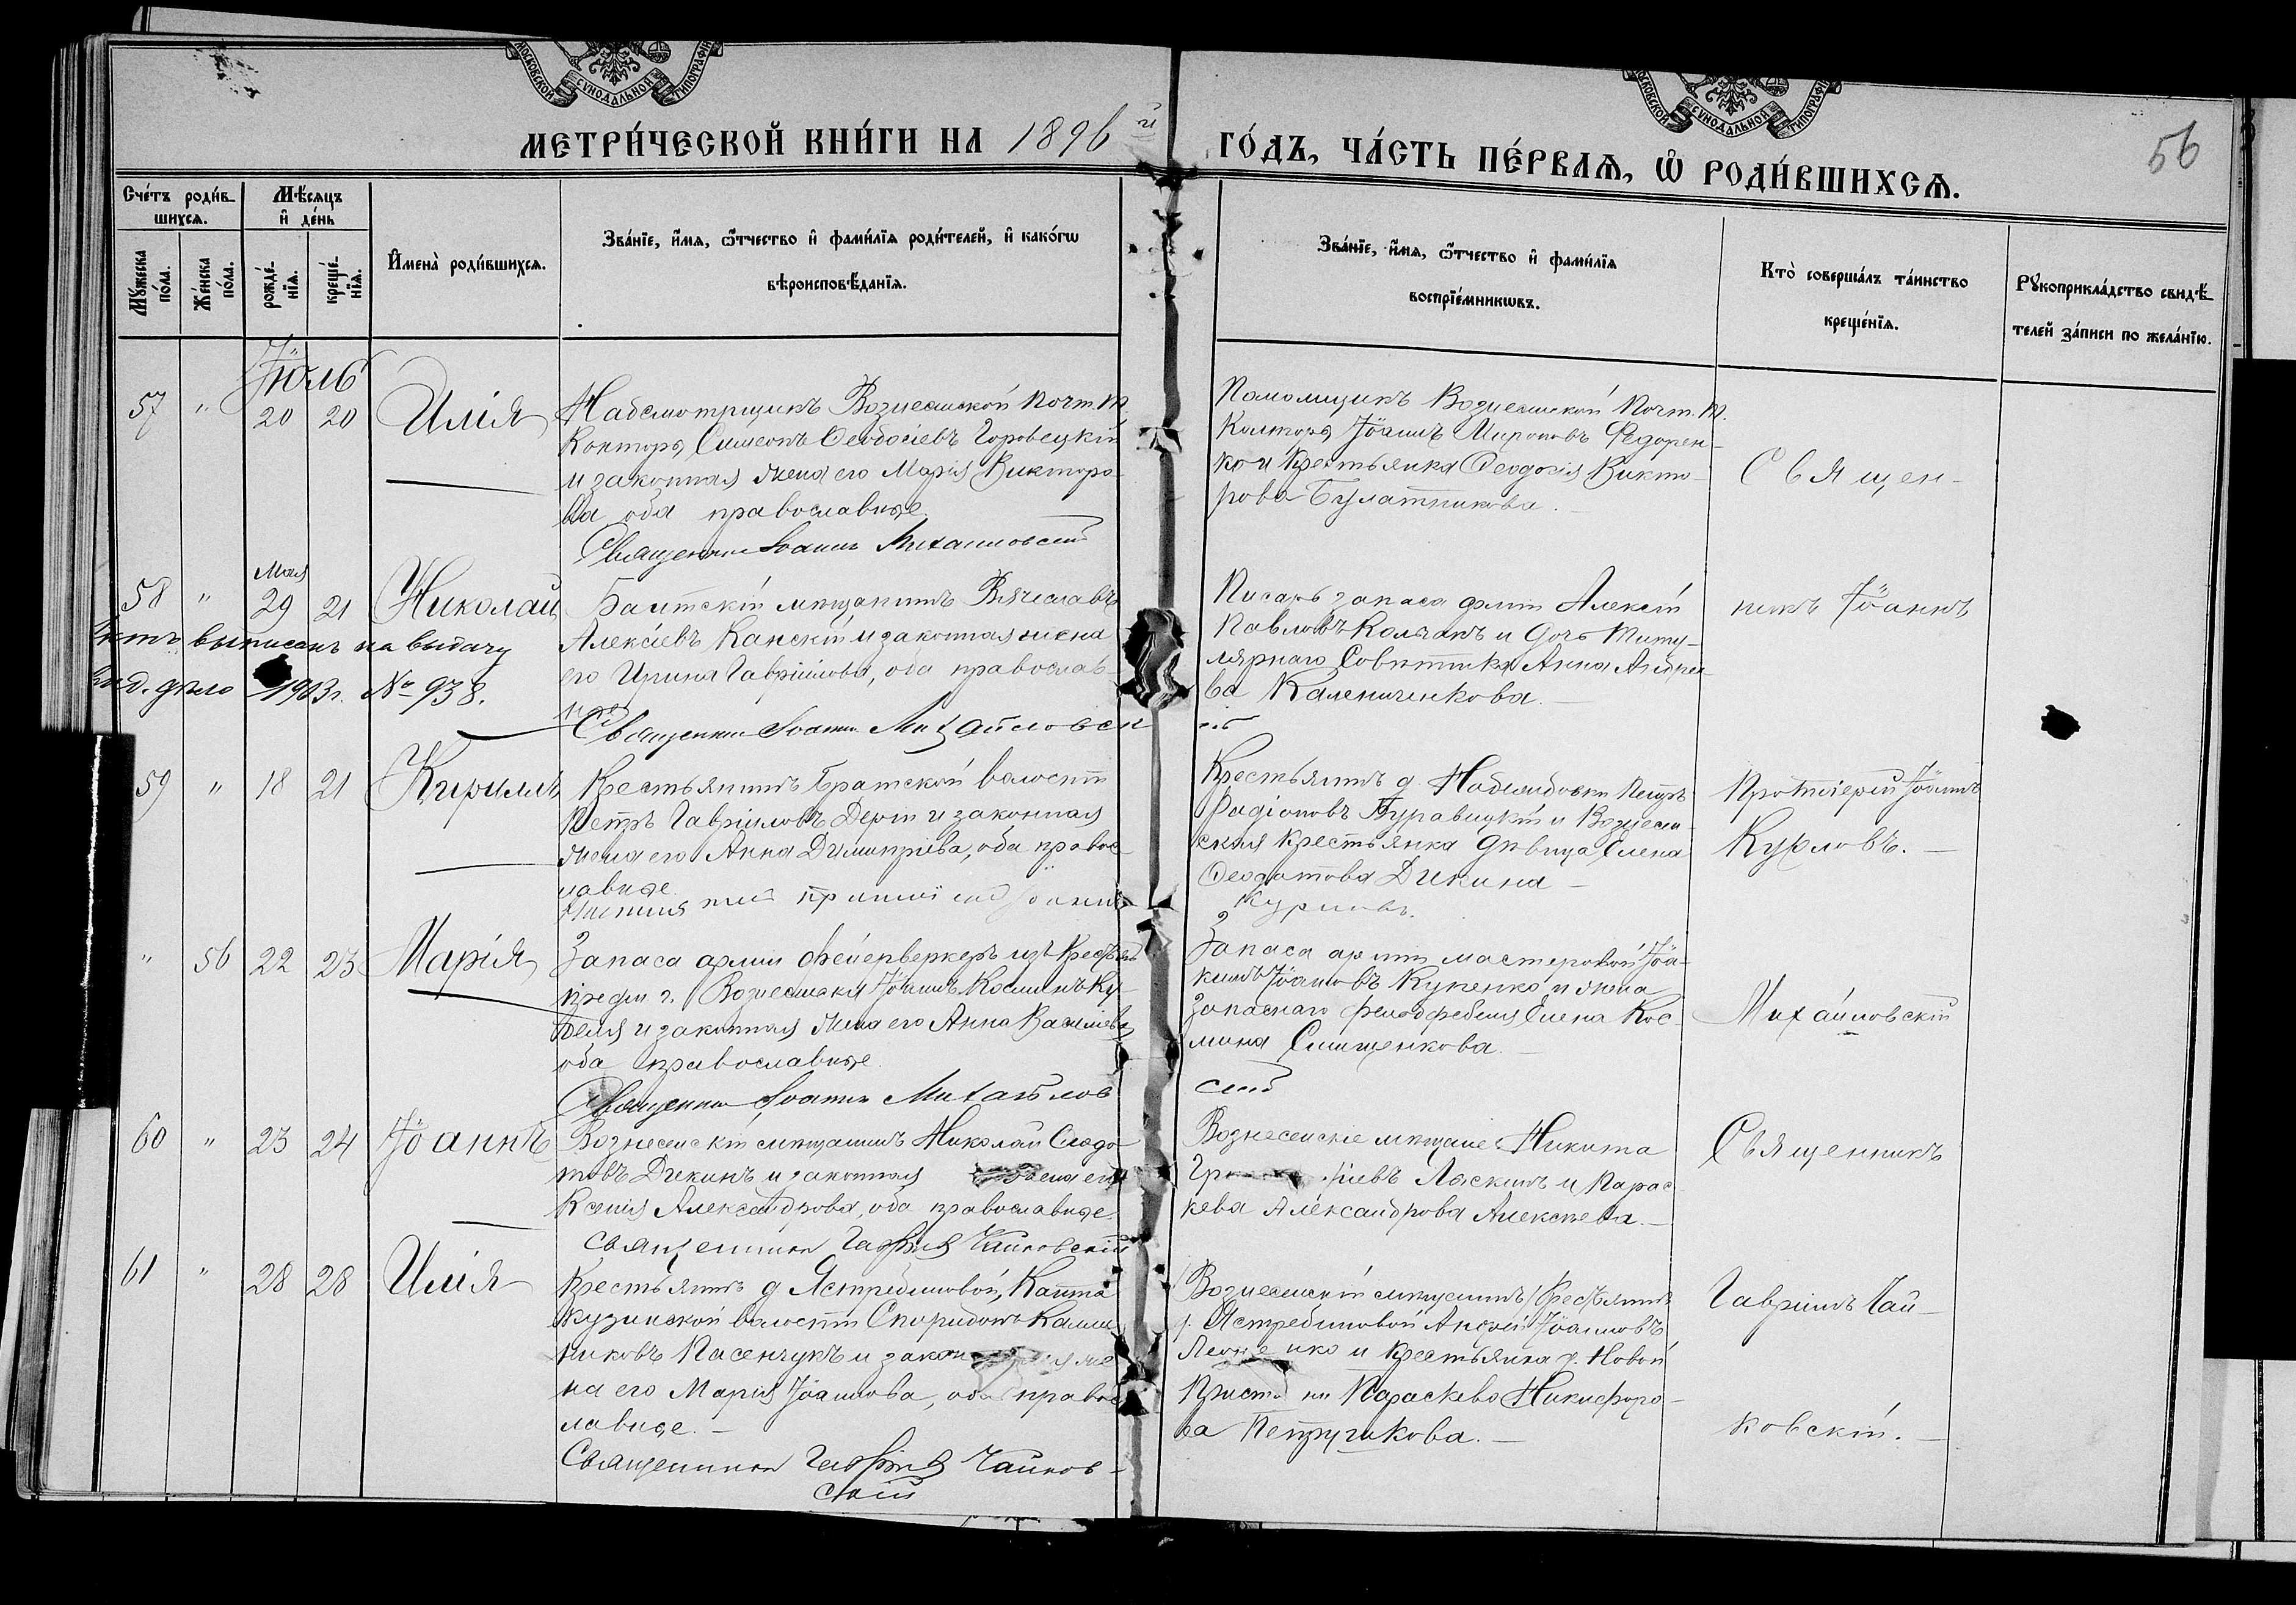 МОСКОВСКОЙ СѴНОДАЛЬНОЙ ТИПОГРАФІИ
МЕТРИ́ЧЕСКОЙ КНИ́ГИ НА 1896 й
МОСКОВСКОЙ СѴНОДАЛЬНОЙ ТИПОГРАФІИ
ГО́ДЪ, ЧА́СТЬ ПЕ́РВАѦ, Ѡ РОДИ́ВШИХСѦ.
56
Счéтъ роди́в-
шихсѧ.
Мѣ́сѧцъ
и҆ де́нь
Мꙋжеска
по́ла.
Же́нска
по́ла.
рожде́-
нїѧ.
креще́-
нїѧ.
И҆мена̀ роди́вшихсѧ.
Зва́нїе, и҆́мѧ, ѻ҆́тчество и҆ фами́лїѧ роди́телей, и҆ како́гѡ
вѣроисповѣ́данїѧ.
Зва́нїе, и҆́мѧ, ѻ҆́тчество и҆ фами́лїѧ
воспрїе́мникѡвъ.
Кто̀ соверша́лъ та́инство
креще́нїѧ.
Рꙋкоприкла́дство свидѣ́-
телей за́писи по жела́нїю.
Іюль
57 " 20 20 Илія
Надсмотрщикъ Вознесенской Почт. Т.
Конторы, Симеонъ Ѳеодосіевъ Горовецкій
и законная жена его Марія Викторо-
ва оба православные.
Священникъ Іоаннъ Михайловскій
Помощникъ Вознесенской Почт. Т.
Конторы, Іоаннъ Мироновъ Федорен-
ко и Крестьянка Ѳеодосія Викто-
рова Булатникова.
Священ-
Мая
58 " 29 21 Николай
Актъ выписанъ на выдачу
вид. дѣло 1903 г. № 938.
Балтскій мѣщанинъ Вячеславъ
Алексіевъ Канскій и законная жена
его Ирина Гавріилова, оба православ-
ные
Священникъ Іоаннъ Михайловскій
Писарь запаса арміи Алексій
Павловъ Колчакъ и дочь Титу-
лярнаго Совѣтника Анна Андрее-
ва Калениченкова.
никъ Іоаннъ
59 " 18 21 Кириллъ
Крестьянинъ Братской волости
Петръ Гавріиловъ и законная
жена его Анна Димитріева, оба правос-
лавные.
Крестьянинъ д. Петръ
Родіоновъ Журавицкій и Вознесен-
ская крестьянка дѣвица Елена
Ѳеодотова Дикина
Курловъ.
Протоіерей Іоаннъ
Курловъ.
" 56 22 23 Марія
Запаса арміи фейерверкеръ изъ крестьянъ
предм. г. Вознесенска Іоаннъ Косминъ Ку-
беля и законная жена его Анна Василіева
оба православные.
Священникъ Іоаннъ Михайлов
скій
Запаса арміи мастеровой Іоа-
кимъ Іоанновъ Купенко и жена
запаснаго фельдфебеля Елена Кос-
мина Слищенкова.
Михайловскій
60 " 23 24 Іоаннъ
Вознесенскій мѣщанинъ Николай Ѳеодо-
товъ Дикинъ и законная жена его
Ксенія Александрова, оба православные.
Священникъ Гавріилъ Чайковскій
Вознесенскіе мѣщане Никита
Ласкинъ и Парас-
кева Александрова Алексѣева.
Священникъ
61 " 28 28 Илія
Крестьянинъ д. Ястребиновой, Канта-
кузинской волости Спиридонъ Калли-
никовъ Пасенчукъ и законная же-
на его Марія Іоаннова, оба правос-
лавные.
Священникъ Гавріилъ Чайков-
скій
Вознесенскій мѣщанинъ (крестьянинъ
д. Ястребиновой Іоанновъ
и крестьянка д. Новой
Параскева Никифоро-
ва Петручкова.
Гавріилъ Чай-
ковскій.